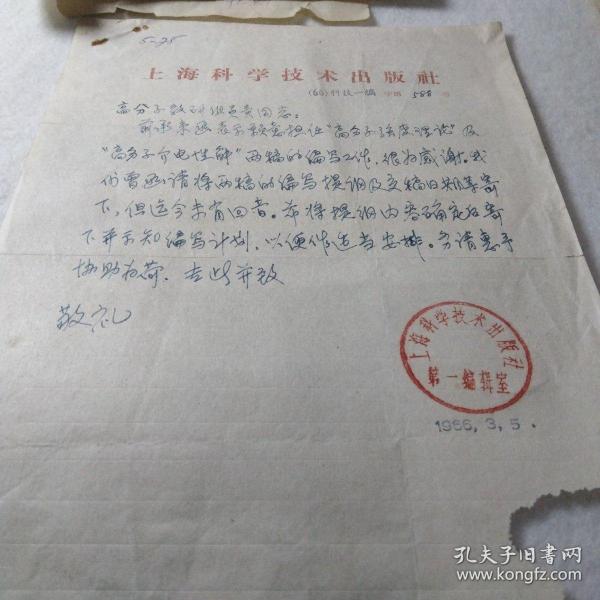 5-75
上海科学技术出版社
(66)科技一编 字第 588 号
高分子教研组负责同志：
前承来函表示愿意担任“高分子强度理论”及
“高分子介电性能”两稿的编写工作，很为感谢。我
们曾函请将两稿的编写提纲及交稿日期等寄
下，但迄今未有回音。希将提纲内容确定后寄
下并示知编写计划，以便作适当安排。务请惠予
协助为荷。专此并致
敬礼
上海科学技术出版社
第一编辑室
1966.3.5.
孔夫子旧书网
www.kongfz.com